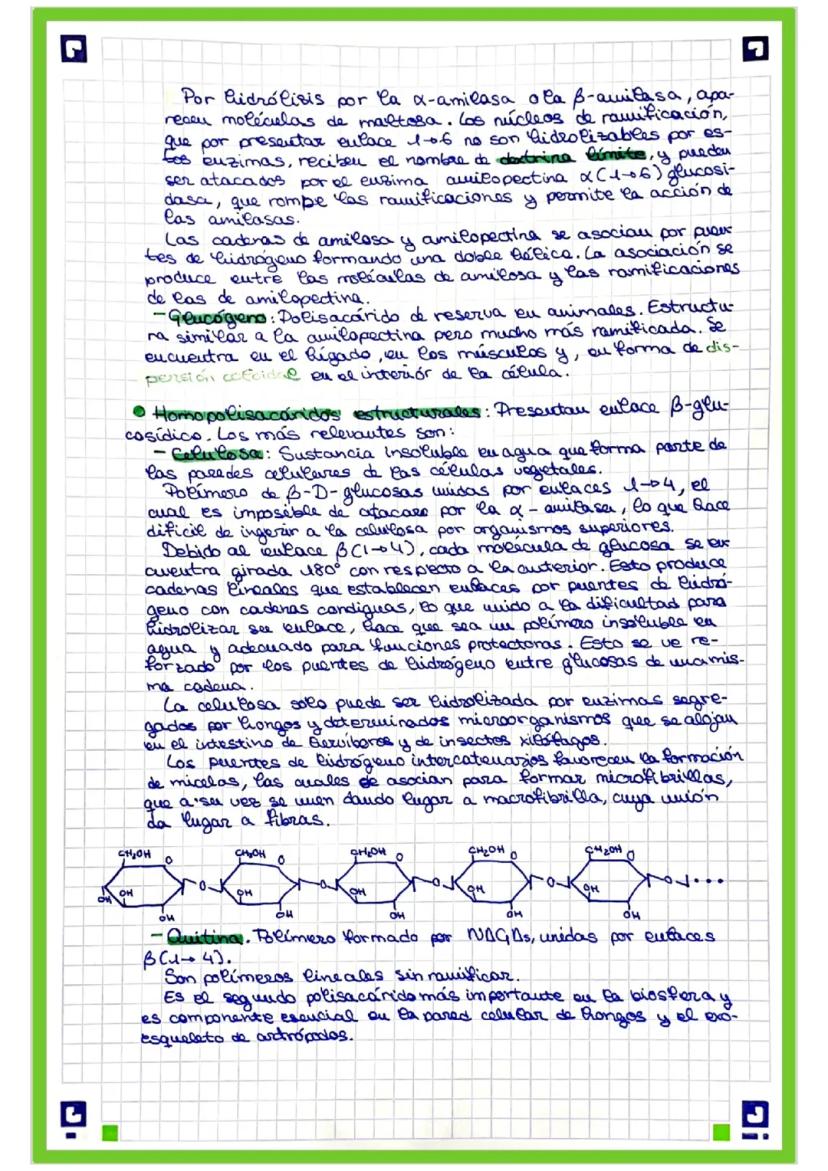 Por hidrólisis por la α-amilasa o la β-amilasa, apa-
recen moléculas de maltosa. Los núcleos de ramificación,
que por presentar enlace 1→6 no son hidrolizables por es-
tos enzimas, reciben el nombre de dextrina límite, y pueden
ser atacados por el enzima amilopectina α(1→6) glucosi-
dasa, que rompe las ramificaciones y permite la acción de
las amilasas.
Las cadenas de amilosa y amilopectina se asocian por puen-
tes de hidrógeno formando una doble hélice. La asociación se
produce entre las moléculas de amilosa y las ramificaciones
de las de amilopectina.
- Glucógeno: Polisacárido de reserva en animales. Estructu-
ra similar a la amilopectina pero mucho más ramificada. Se
encuentra en el hígado, en los músculos y, en forma de dis-
persión coloidal en el interiór de la célula.
• Homopolisacáridos estructurales: Presentan enlace β-glu-
cosídico. Los más relevantes son:
- Celulosa: Sustancia insoluble en agua que forma parte de
las paredes celulares de las células vegetales.
Polímero de β-D-glucosas unidas por enlaces 1→4, el
cual es imposible de atacar por la α-amilasa, lo que hace
difícil de ingerir a la celulosa por organismos superiores.
Debido al enlace β(1→4), cada molécula de glucosa se en
cuentra girada 180° con respecto a la anterior. Esto produce
cadenas lineales que establecen enlaces por puentes de hidró-
geno con cadenas condiguas, lo que unido a la dificultad para
hidrolizar su enlace, hace que sea un polímero insoluble en
agua y adecuado para funciones protectoras. Esto se ve re-
forzado por los puentes de hidrógeno entre glucosas de una mis-
ma cadena.
La celulosa solo puede ser hidrolizada por enzimas segre-
gados por hongos y determinados microorganismos que se alojan
en el intestino de hervíboros y de insectos xilófagos.
Los puentes de hidrógeno intercatenarios favorecen la formación
de micelas, las cuales se asocian para formar microfibrillas,
que a su vez se unen dando lugar a macrofibrilla, cuya unión
da lugar a fibras.
CH₂OH O CH₂OH O CH₂OH O CH₂OH O CH₂OH O
OH OH O OH O OH O OH O OH O ...
OH OH OH OH OH
- Quitina. Polímero formado por NAGAs, unidas por enlaces
β(1→4).
Son polímeros lineales sin ramificar.
Es el segundo polisacárido más importante en la biosfera y
es componente esencial en la pared celular de hongos y el exo-
esqueleto de artrópodos.